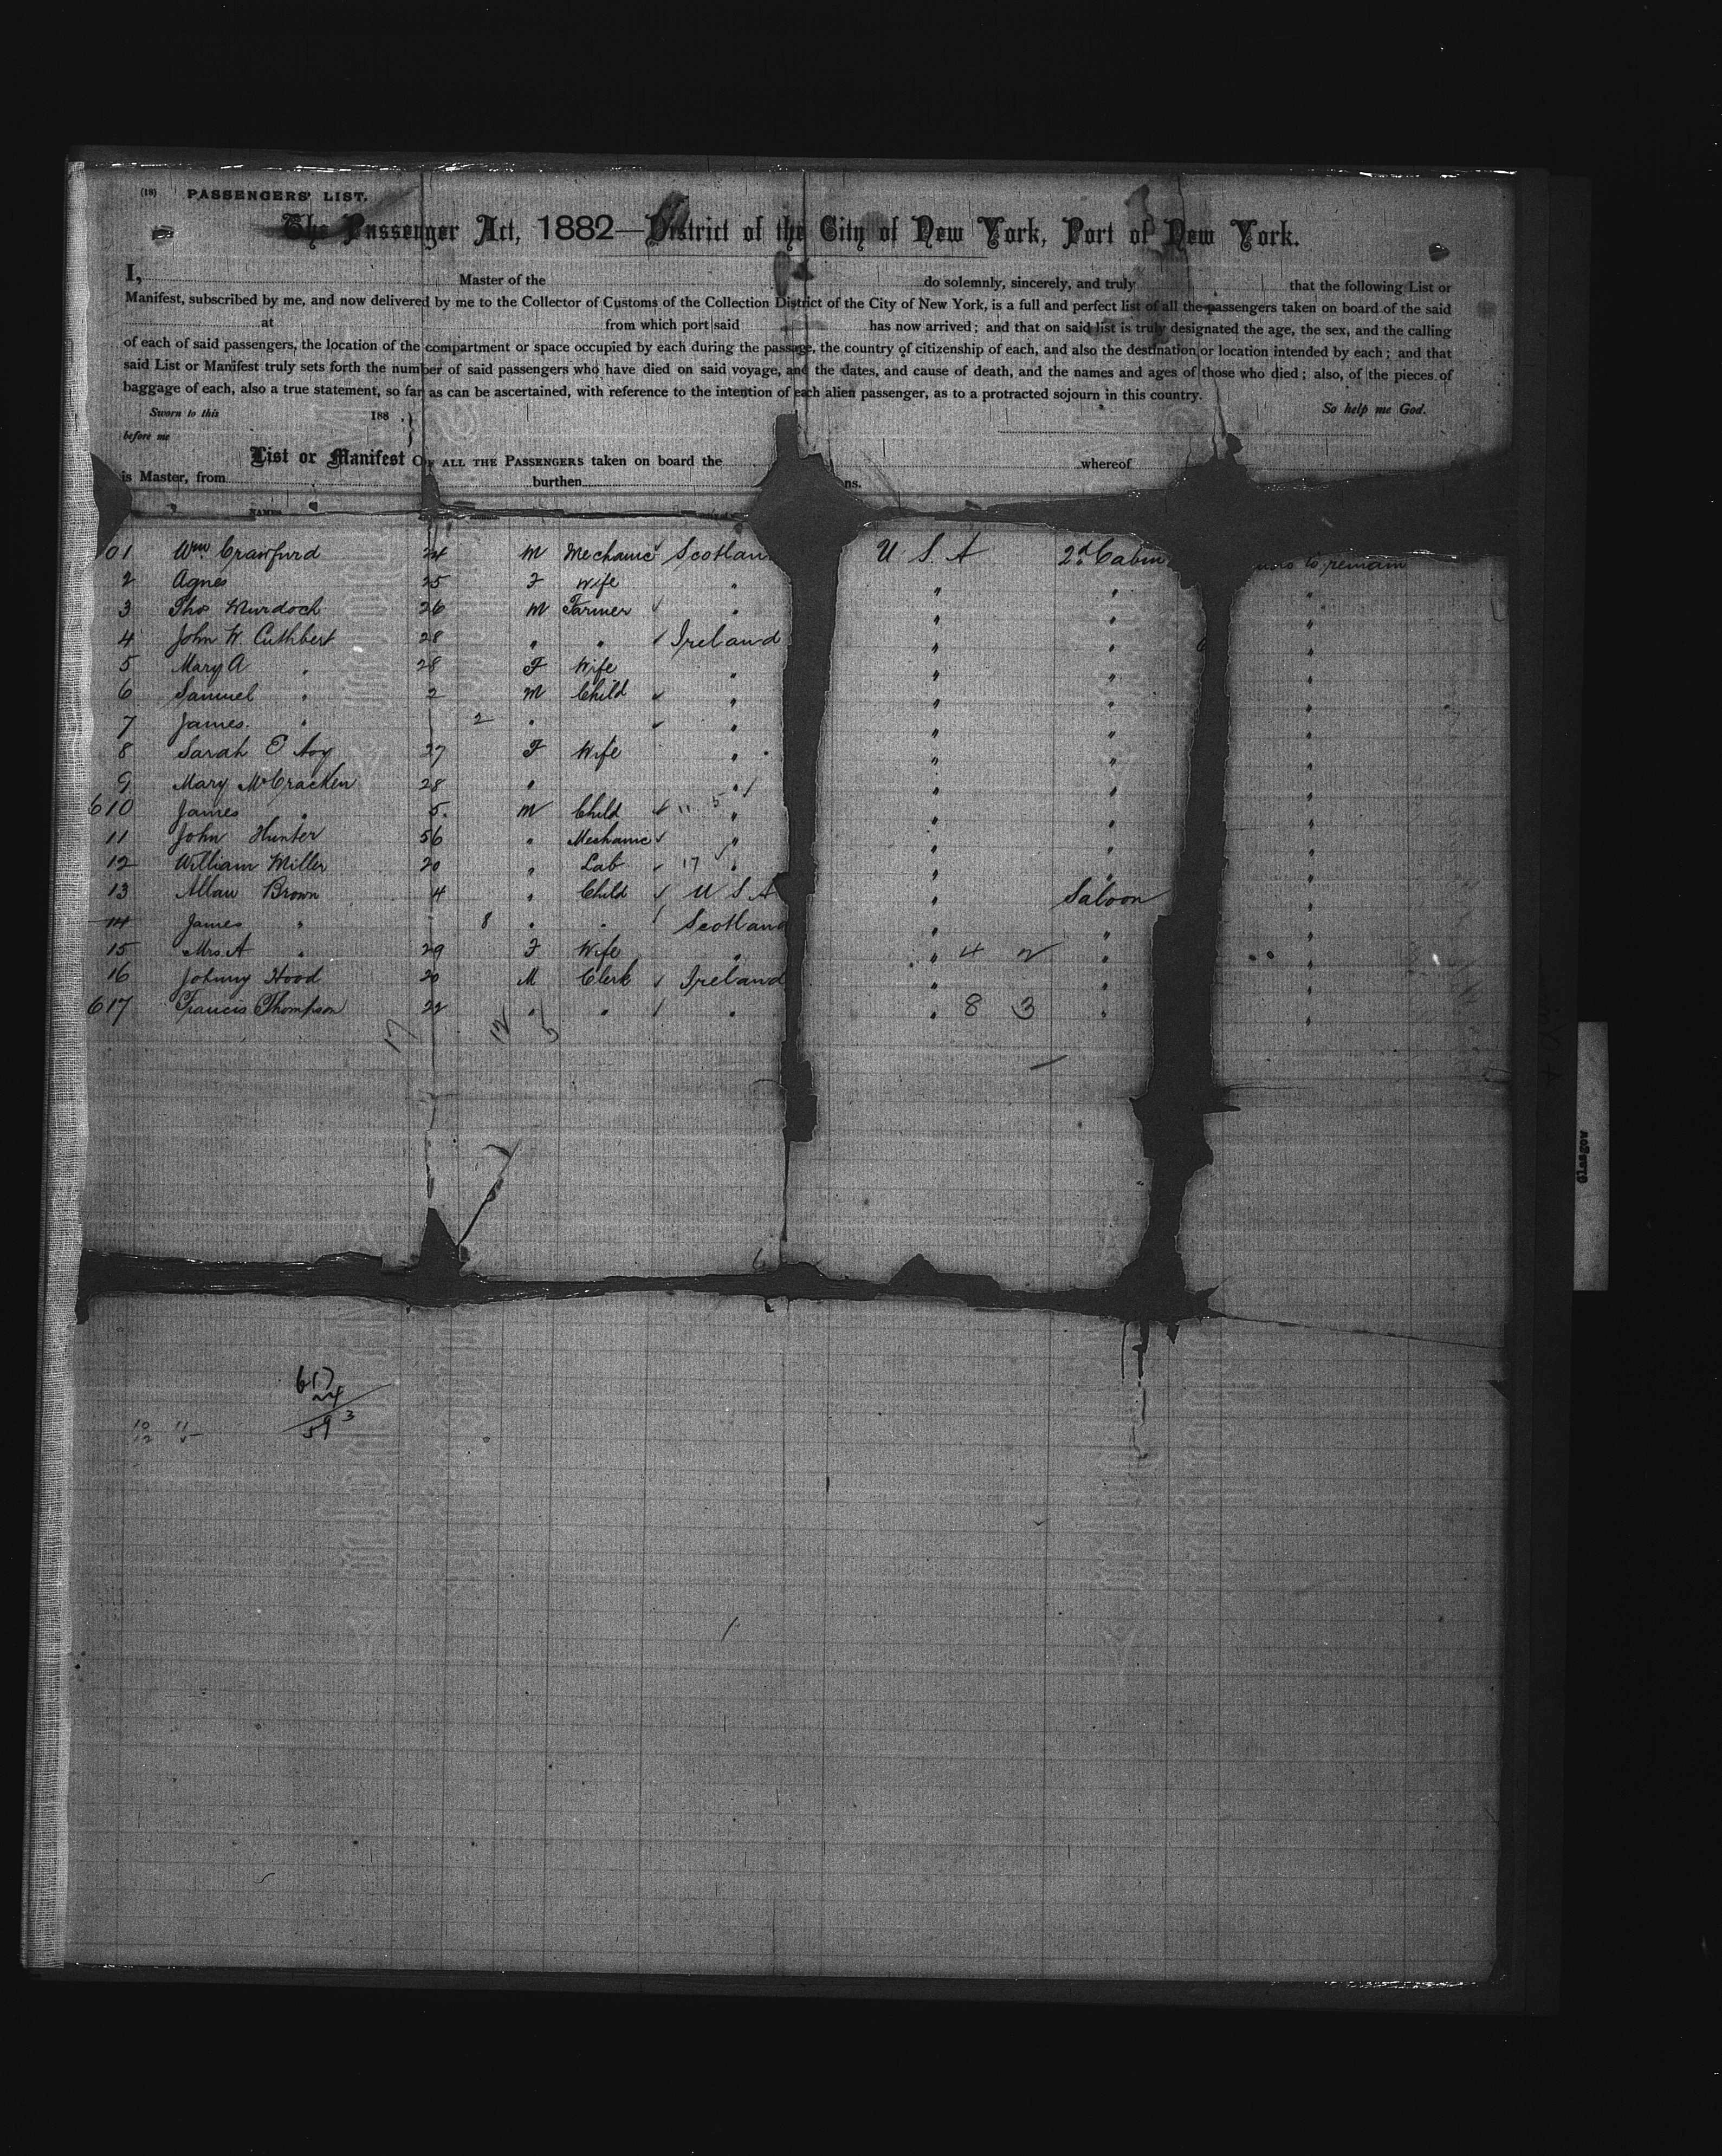 (18) PASSENGERS' LIST.
The Passenger Act, 1882—District of the City of New York, Port of New York.
I, Master of the do solemnly, sincerely, and truly that the following List or
Manifest, subscribed by me, and now delivered by me to the Collector of Customs of the Collection District of the City of New York, is a full and perfect list of all the passengers taken on board of the said
at from which port said has now arrived; and that on said list is truly designated the age, the sex, and the calling
of each of said passengers, the location of the compartment or space occupied by each during the passage, the country of citizenship of each, and also the destination or location intended by each; and that
said List or Manifest truly sets forth the number of said passengers who have died on said voyage, and the dates, and cause of death, and the names and ages of those who died; also, of the pieces of
baggage of each, also a true statement, so far as can be ascertained, with reference to the intention of each alien passenger, as to a protracted sojourn in this country.
Sworn to this 188 So help me God.
before me
List or Manifest OF ALL THE PASSENGERS taken on board the whereof
is Master, from burthen ns.
NAMES
01 Wm Crawfurd 24 M Mechanic Scotlan U.S.A 2d Cabin to remain
2 Agnes 25 F Wife " " " "
3 Thos Murdoch 26 M Farmer " " " "
4 John W. Cuthbert 28 " " Ireland " " "
5 Mary A " 28 F Wife " " " "
6 Samuel " 2 M Child " " " "
7 James. " 2 " " " " "
8 Sarah E 27 F Wife " " " "
9 Mary McCracken 28 " " " " "
610 James " 5. M Child 11 5 " " " "
11 John Hunter 56 " Mechanic " " " "
12 William Miller 20 " Lab 17 " " " "
13 Allan Brown 4 " Child U S A " Saloon "
14 James " 8 " " Scotland " " "
15 Mrs. A " 29 F Wife " " 4 2 " "
16 Johnny Hood 20 M Clerk Ireland " " "
617 Francis Thompson 22 " " " " 8 3 " "
17 12 5
617
24
593
10 11
12 5
Glasgow